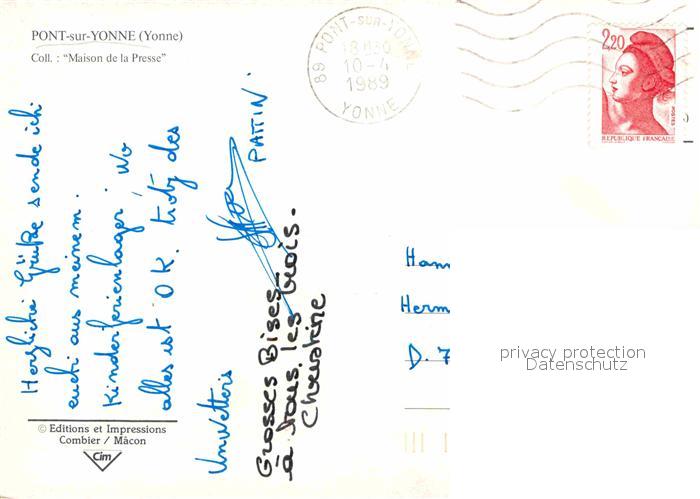 PONT-sur-YONNE (Yonne)
Coll. : "Maison de la Presse"
89 PONT-SUR-YONNE
18H30
10-4
1989
YONNE
2,20
POSTES
REPUBLIQUE FRANÇAISE
Herzliche Grüße sende ich
euch aus meinem
Kinderferienlager wo
alles ist OK. trotz des
Unwetters
PATTIN
Grosses Bises
à tous les trois.
Christine
Han
Herm
D. 7
privacy protection
Datenschutz
© Editions et Impressions
Combier / Mâcon
Cim